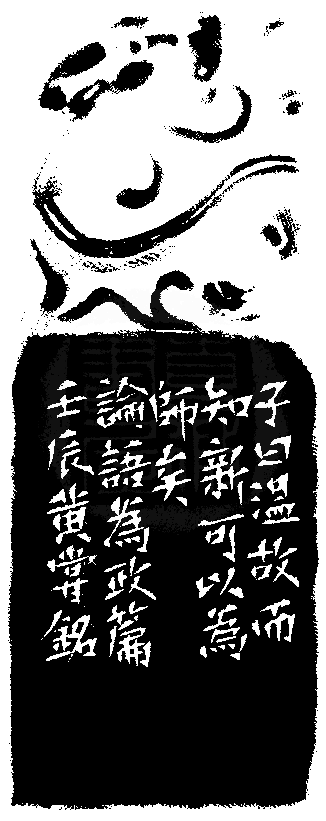 子曰溫故而
知新可以為
師矣
論語為政篇
壬辰黃嘗銘